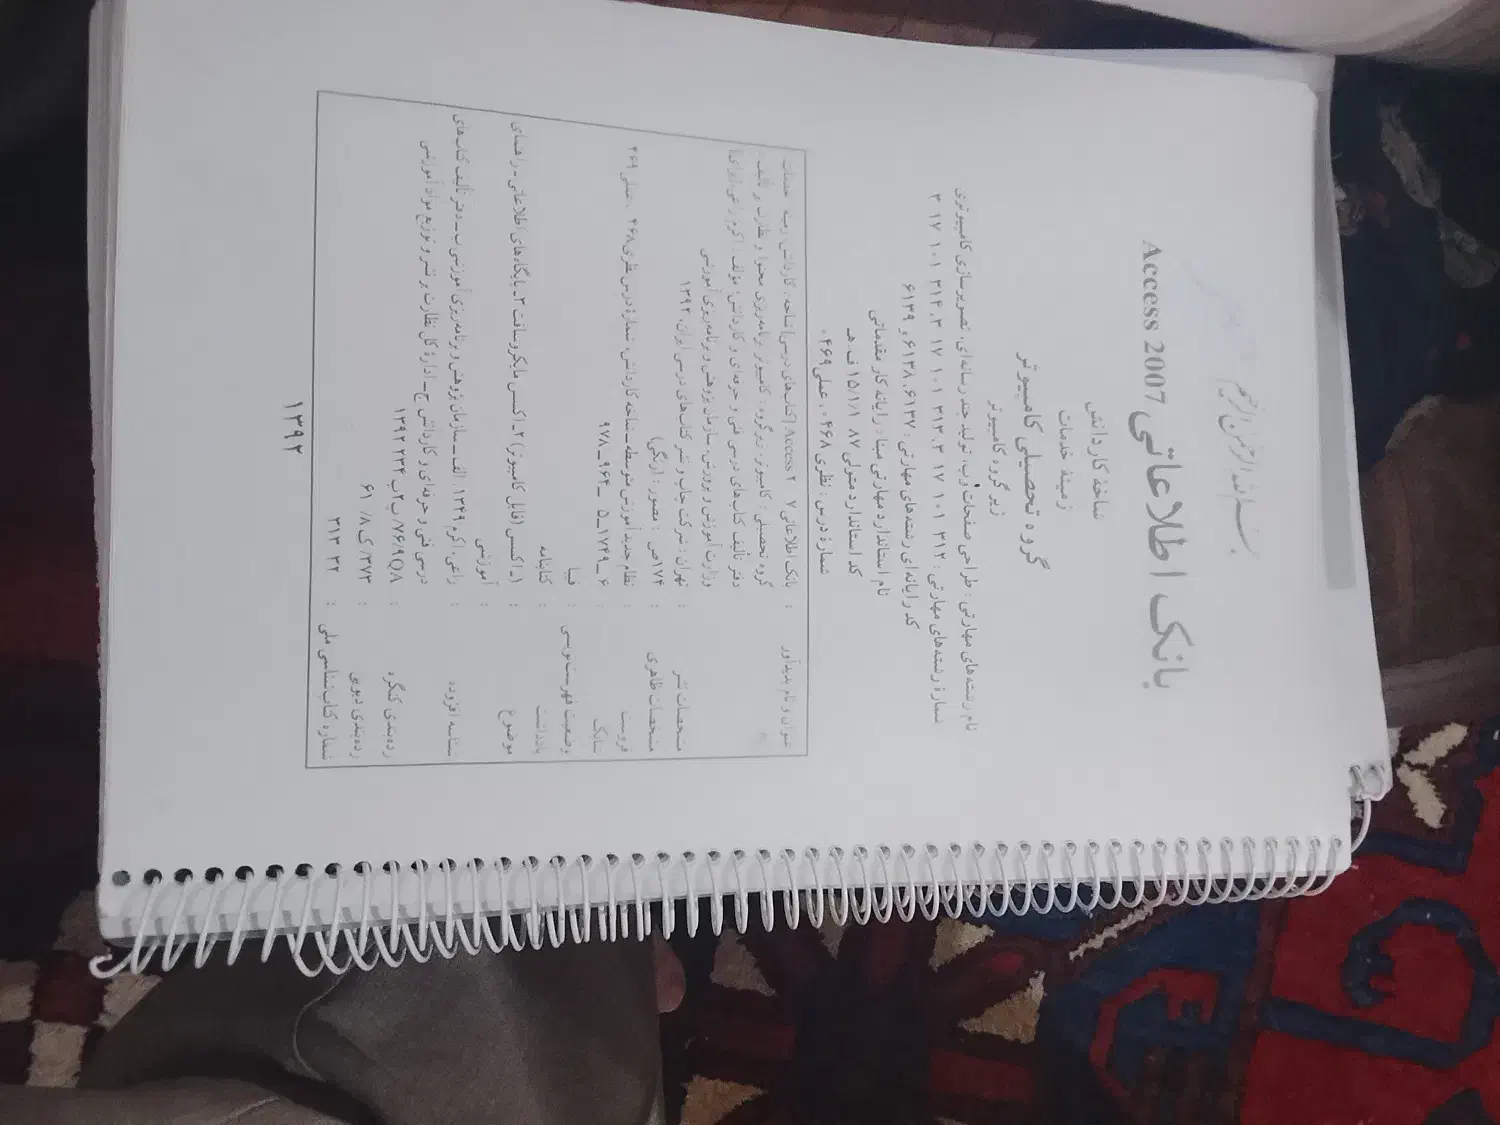 بسم الله الرحمن الرحیم
بانک اطلاعاتی Access 2007
شاخهٔ کاردانش
زمینهٔ خدمات
گروه تحصیلی کامپیوتر
زیر گروه کامپیوتر
نام رشته‌های مهارتی : طراحی صفحات وب، تولید چند رسانه‌ای، تصویرسازی کامپیوتری
شمارهٔ رشته‌های مهارتی : ۳۱۲ ۱۰۱ ۱۷ ۳، ۳۱۳ ۱۰۱ ۱۷ ۳، ۳۱۴ ۱۰۱ ۱۷ ۳
کد رایانه‌ای رشته‌های مهارتی : ۶۱۳۷، ۶۱۳۸ و ۶۱۳۹
نام استاندارد مهارتی مبنا : رایانه کار مقدماتی
کد استاندارد متولی ۸۷ ۱۵/۱/۱ ف.هـ
شمارهٔ درس : نظری ۰۴۶۸، عملی ۰۴۶۹
عنوان و نام پدیدآور : بانک اطلاعاتی Access ۲۰۰۷ [کتاب‌های درسی] شاخه : کاردانش، زمینه خدمات
گروه تحصیلی : کامپیوتر، زیرگروه : کامپیوتر برنامه‌ریزی محتوا و نظارت بر تألیف :
دفتر تألیف کتاب‌های درسی فنی و حرفه‌ای و کاردانش؛ مؤلف : اکرم راعی [برای]
وزارت آموزش و پرورش، سازمان پژوهش و برنامه‌ریزی آموزشی
مشخصات نشر : تهران : شرکت چاپ و نشر کتاب‌های درسی ایران، ۱۳۹۲
مشخصات ظاهری : ۱۷۴ص : مصور : (رنگی)
فروست : نظام جدید آموزش متوسطه ــ شاخه کاردانش، شماره درس نظری ۴۶۸، عملی ۴۶۹
شابک : ۶ ــ ۱۷۴۹ ــ ۵ ۹۶۴ــ ۹۷۸
وضعیت فهرست‌نویسی : فیپا
یادداشت : کتابنامه
موضوع : ۱ــ اکسس (فایل کامپیوتر) ۲ــ اکسس مایکروسافت ۳ــ پایگاه‌های اطلاعاتی ــ راهنمای
آموزشی
شناسه افزوده : راعی، اکرم، ۱۳۴۹. الف ــ سازمان پژوهش و برنامه‌ریزی آموزشی ب ــ دفتر تألیف کتاب‌های
درسی فنی و حرفه‌ای و کاردانش ج ــ ادارهٔ کل نظارت بر نشر و توزیع مواد آموزشی
رده‌بندی کنگره : ۱۳۹۲ ۲۳۴ ب۲ /۷۶/۹QA
رده‌بندی دیویی : ۳۷۳/ ک ۸/ ۶۱
شماره کتاب‌شناسی ملی : ۳۱۳ ۳۲
۱۳۹۲